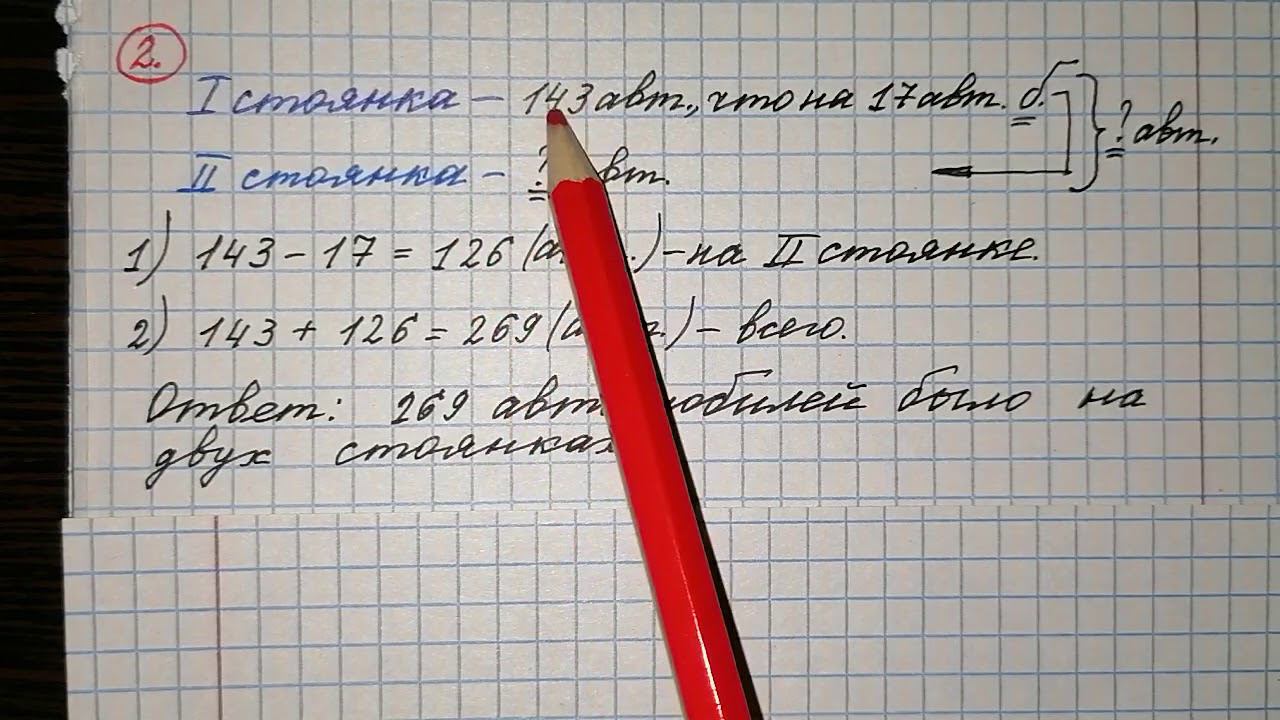 2.
I стоянка – 143 авт., что на 17 авт. б. ? авт.
II стоянка – ?
1) 143 – 17 = 126 ( ) – на II стоянке.
2) 143 + 126 = 269 ( ) – всего.
Ответ: 269 было на
двух стоянках